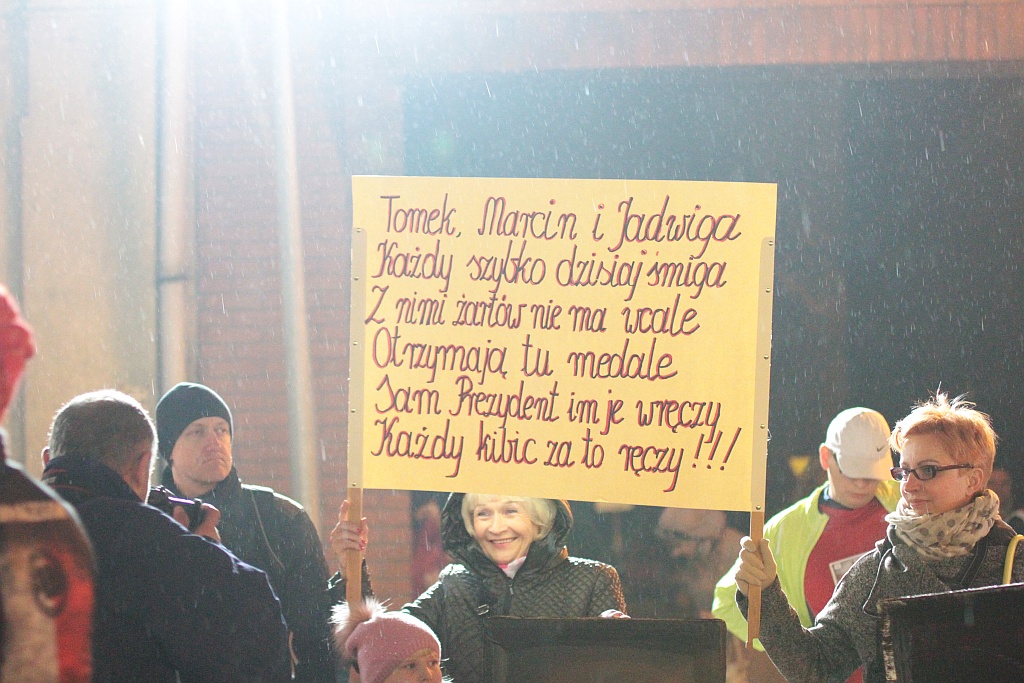 Tomek, Marcin i Jadwiga
Każdy szybko dzisiaj śmiga
Z nimi żartów nie ma wcale
Otrzymają tu medale
Sam Prezydent im je wręczy
Każdy kibic za to ręczy!!!